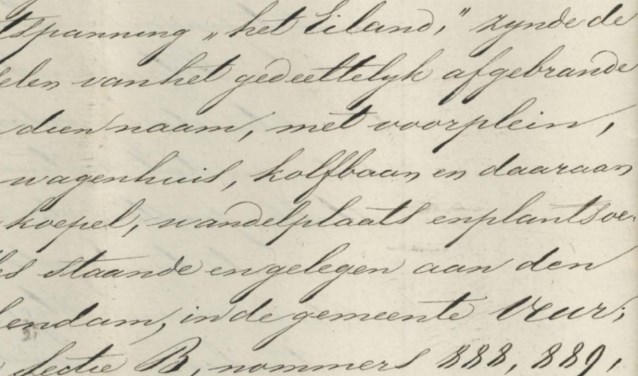 tspanning „het Eiland," zynde de
elen van het gedeeltelyk afgebrande
dien naam, met voorplein,
wagenhuis, kolfbaan en daaraan
koepel, wandelplaats en plantsoe
es staande en gelegen aan den
endam, in de gemeente Veur,
Sectie B, nommers 888, 889,